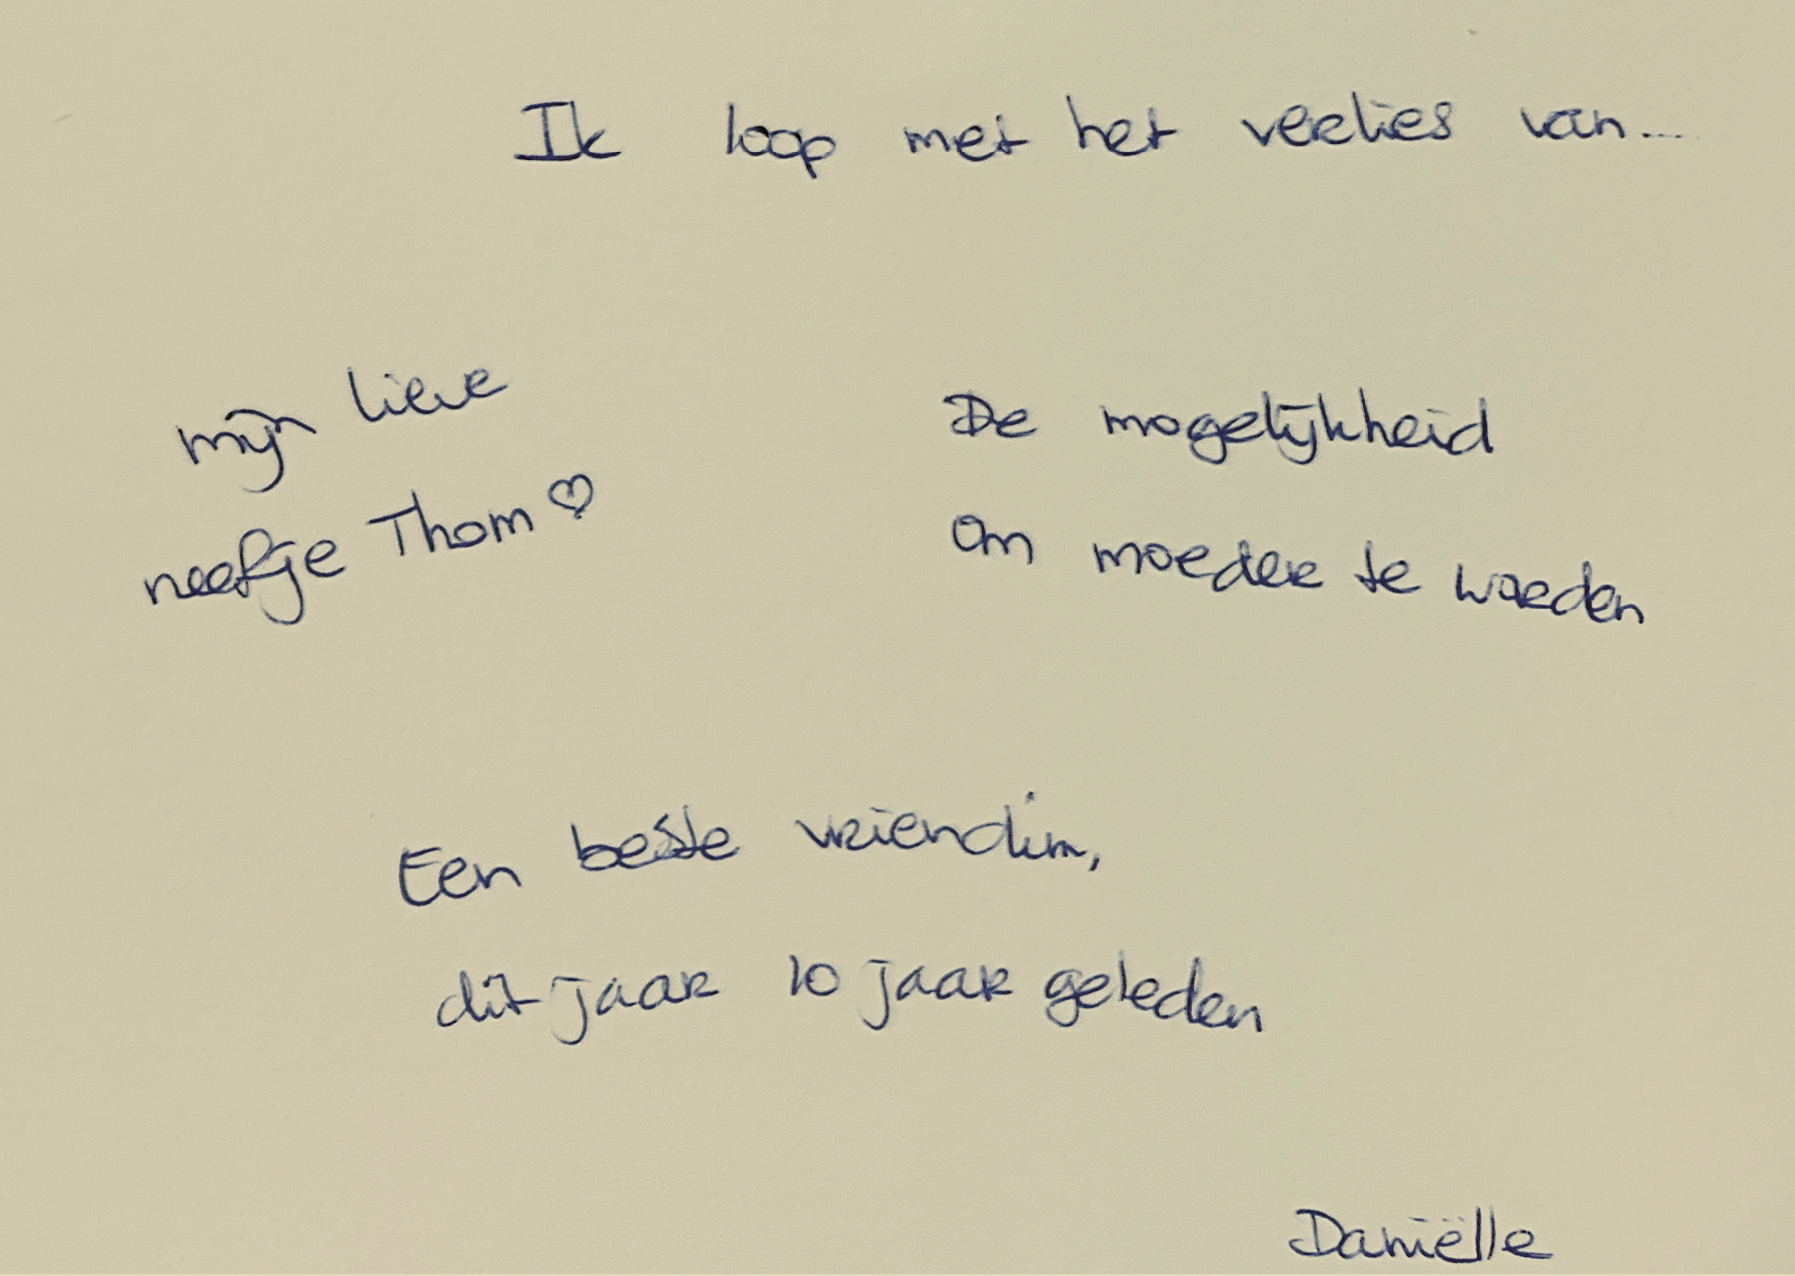 Ik loop met het verlies van....
mijn lieve
neefje Thom ♡
De mogelijkheid
om moeder te worden
Een beste vriendin,
dit jaar 10 jaar geleden
Daniëlle